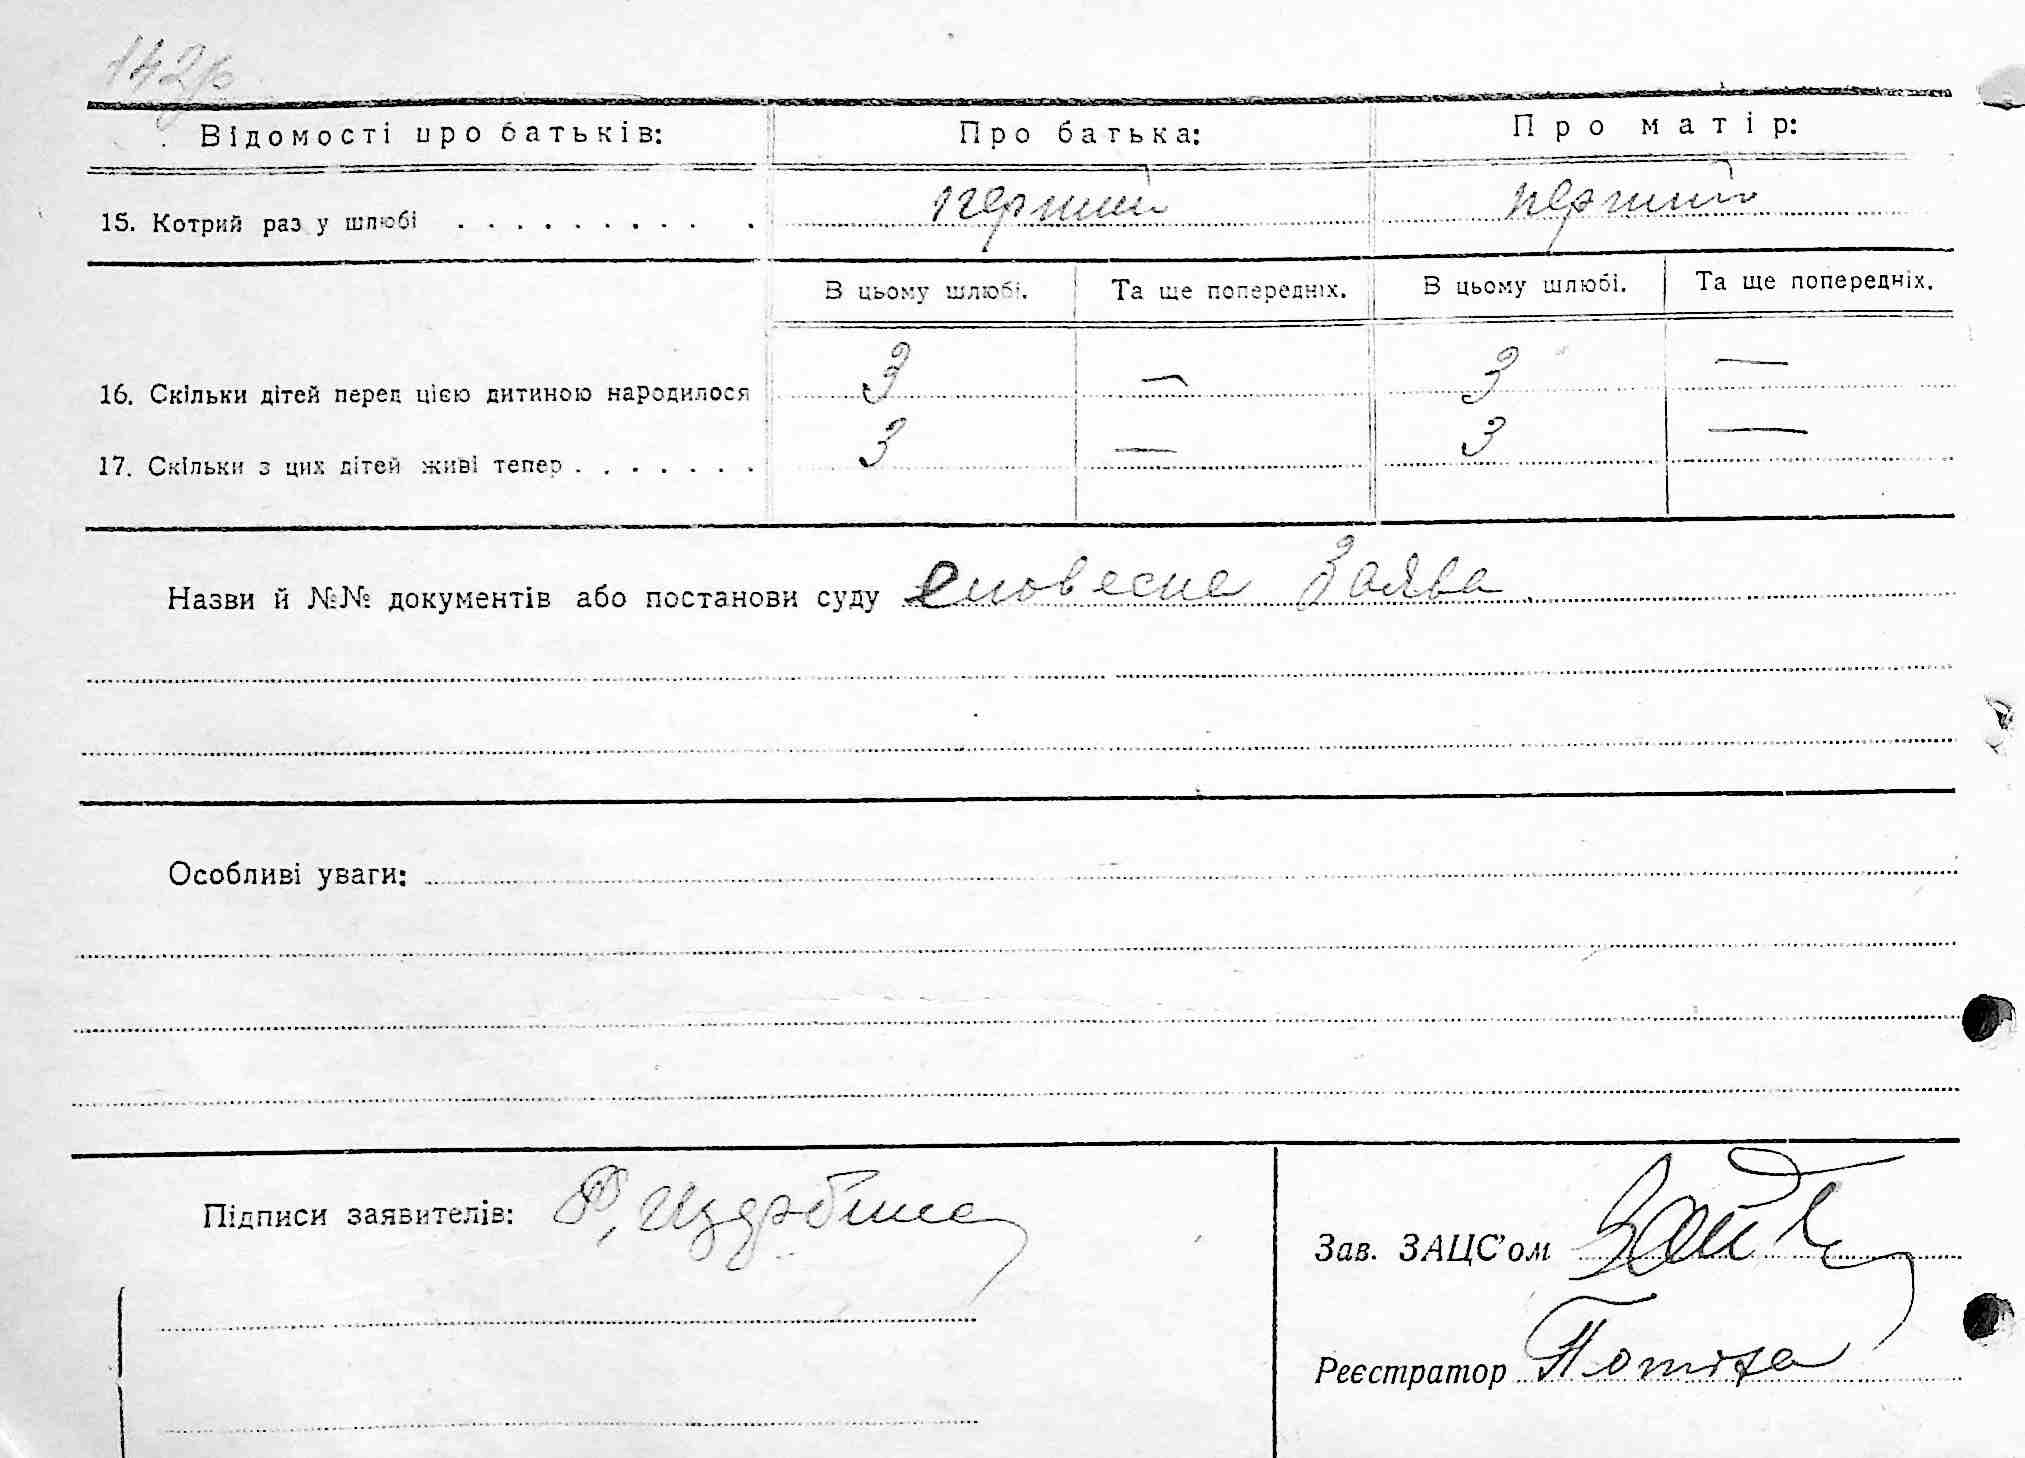 Відомості про батьків: Про батька: Про матір:
15. Котрий раз у шлюбі . . . . . . . . . . перший перший
В цьому шлюбі. Та ще попередніх. В цьому шлюбі. Та ще попередніх.
16. Скільки дітей перед цією дитиною народилося 3 — 3 —
17. Скільки з цих дітей живі тепер . . . . . . . 3 — 3 —
Назви й №№ документів або постанови суду словесне Заява
Особливі уваги:
Підписи заявителів:
Зав. ЗАЦС'ом
Реєстратор